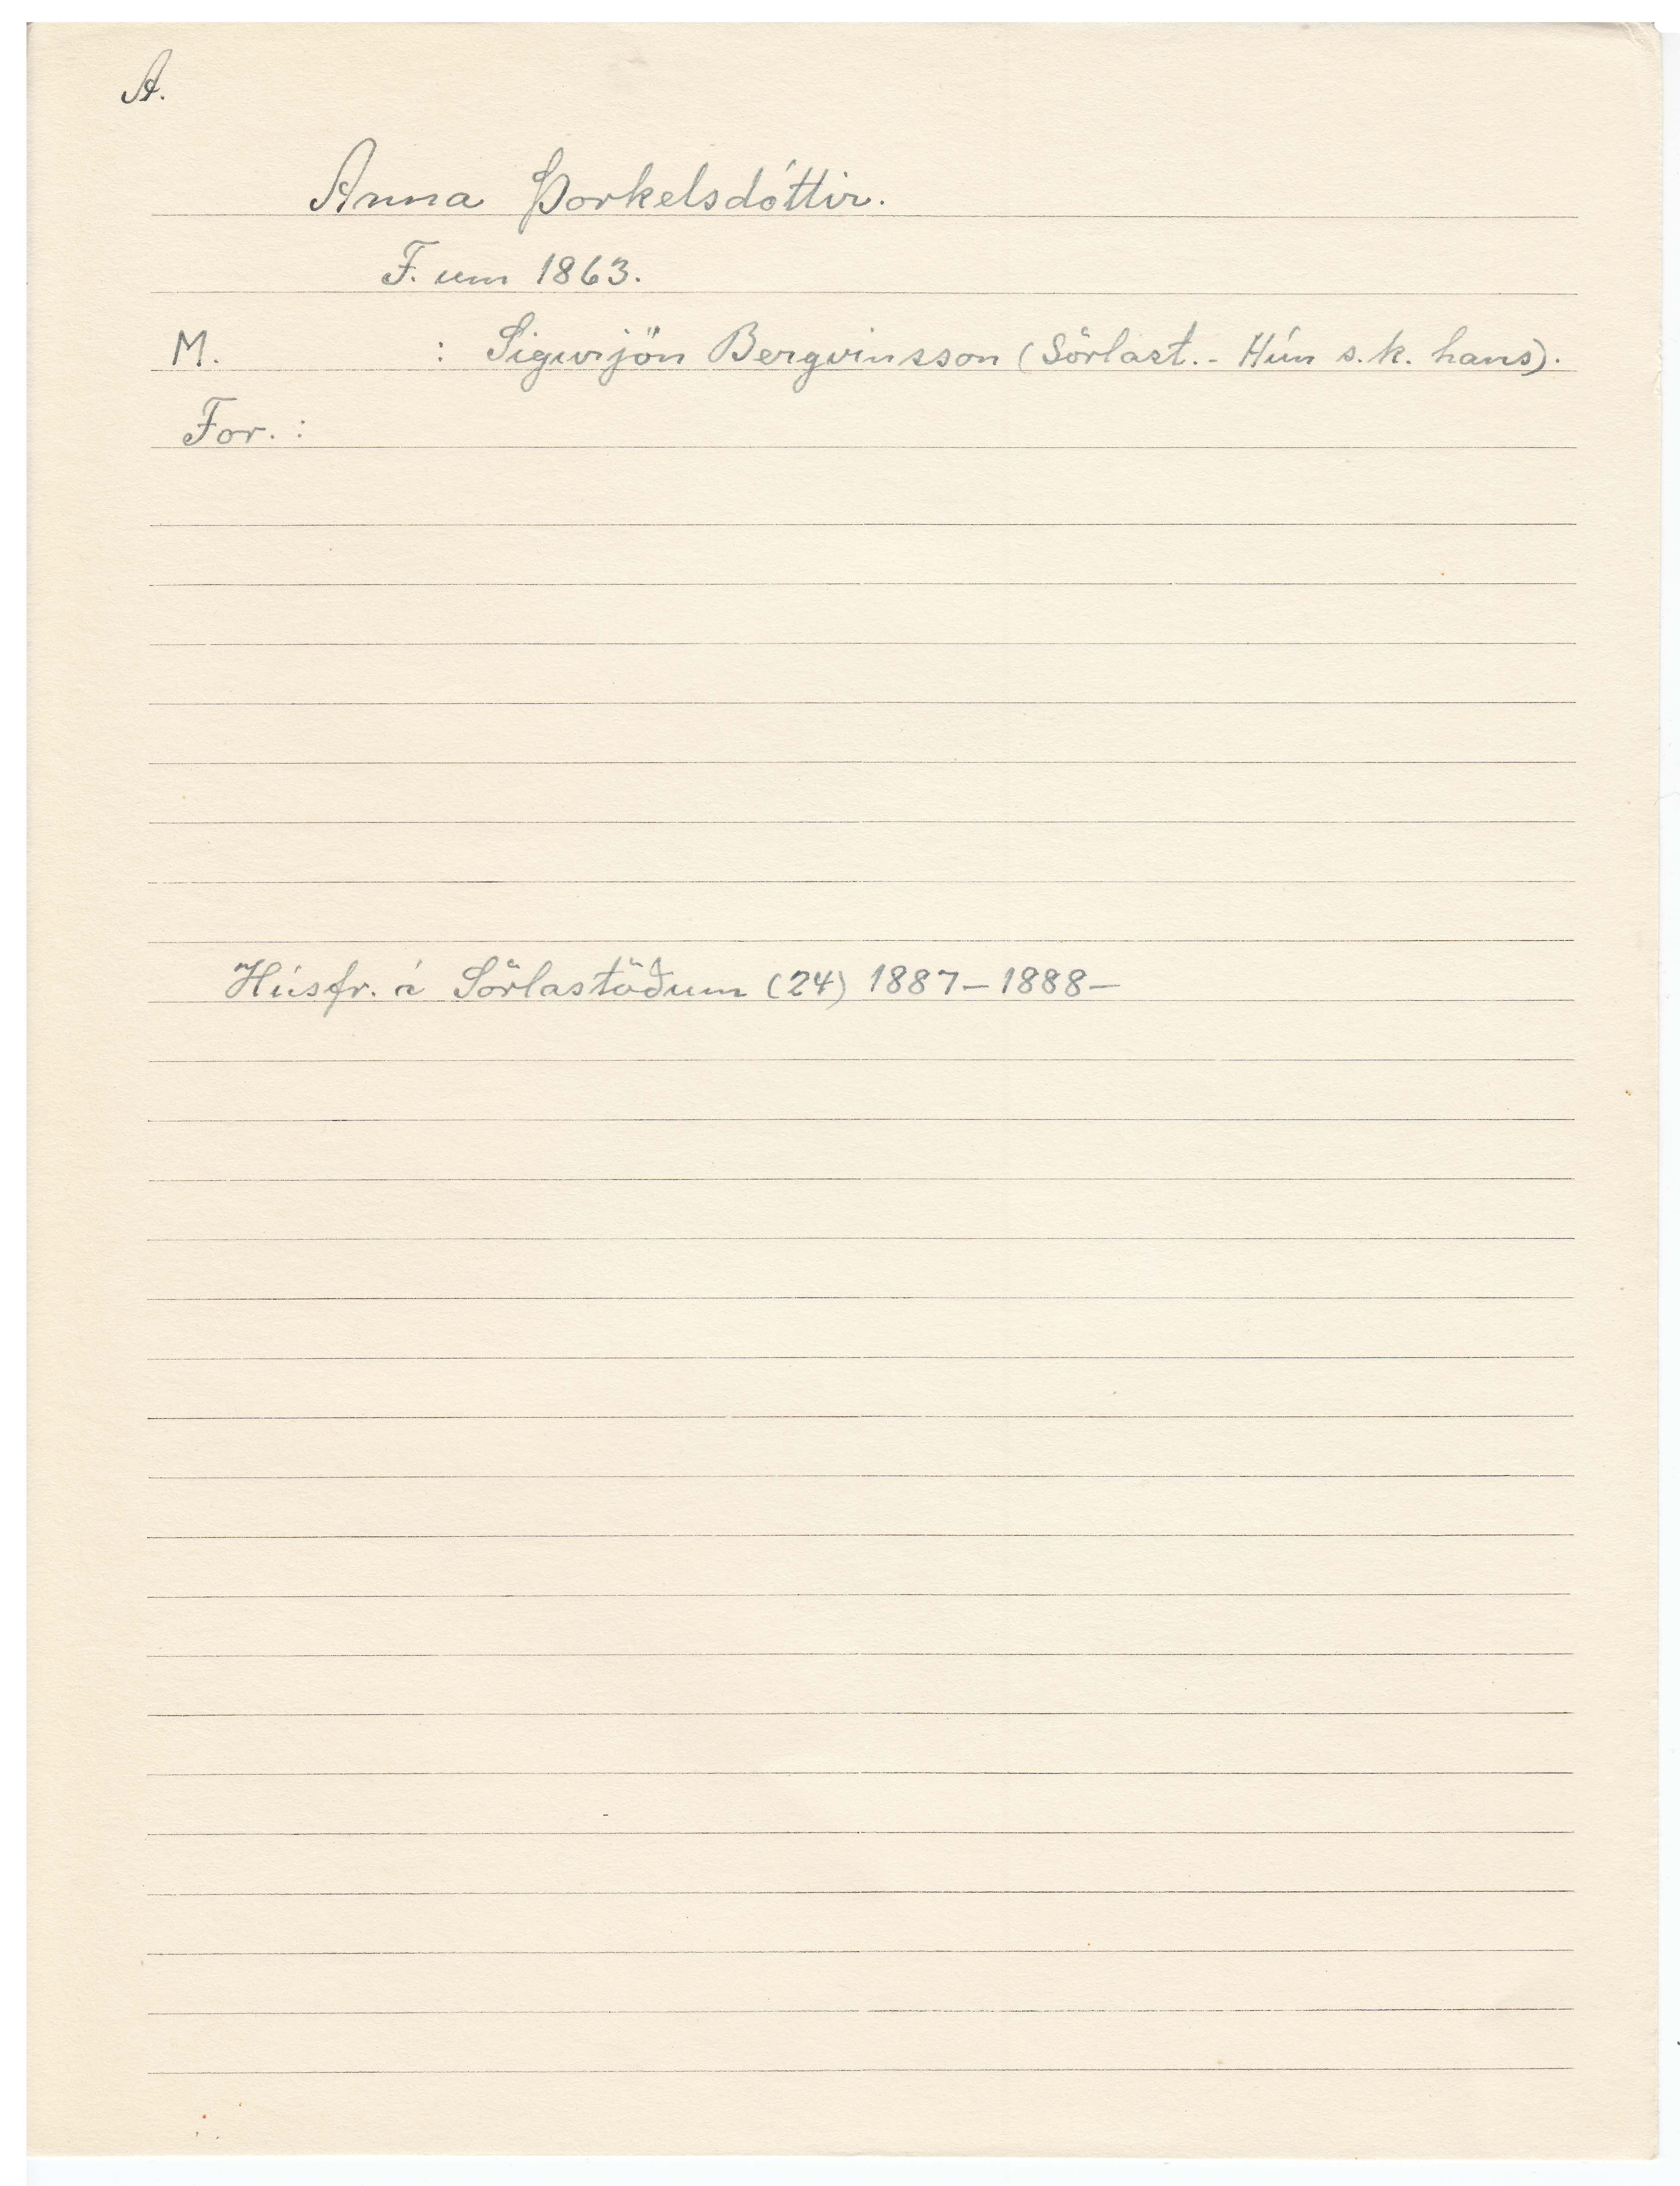 A.
Anna Þorkelsdóttir.
F. um 1863.
M. : Sigurjón Bergvinsson (Sörlast. - Hún s.k. hans).
For. :
Húsfr. á Sörlastöðum (24) 1887 - 1888 -